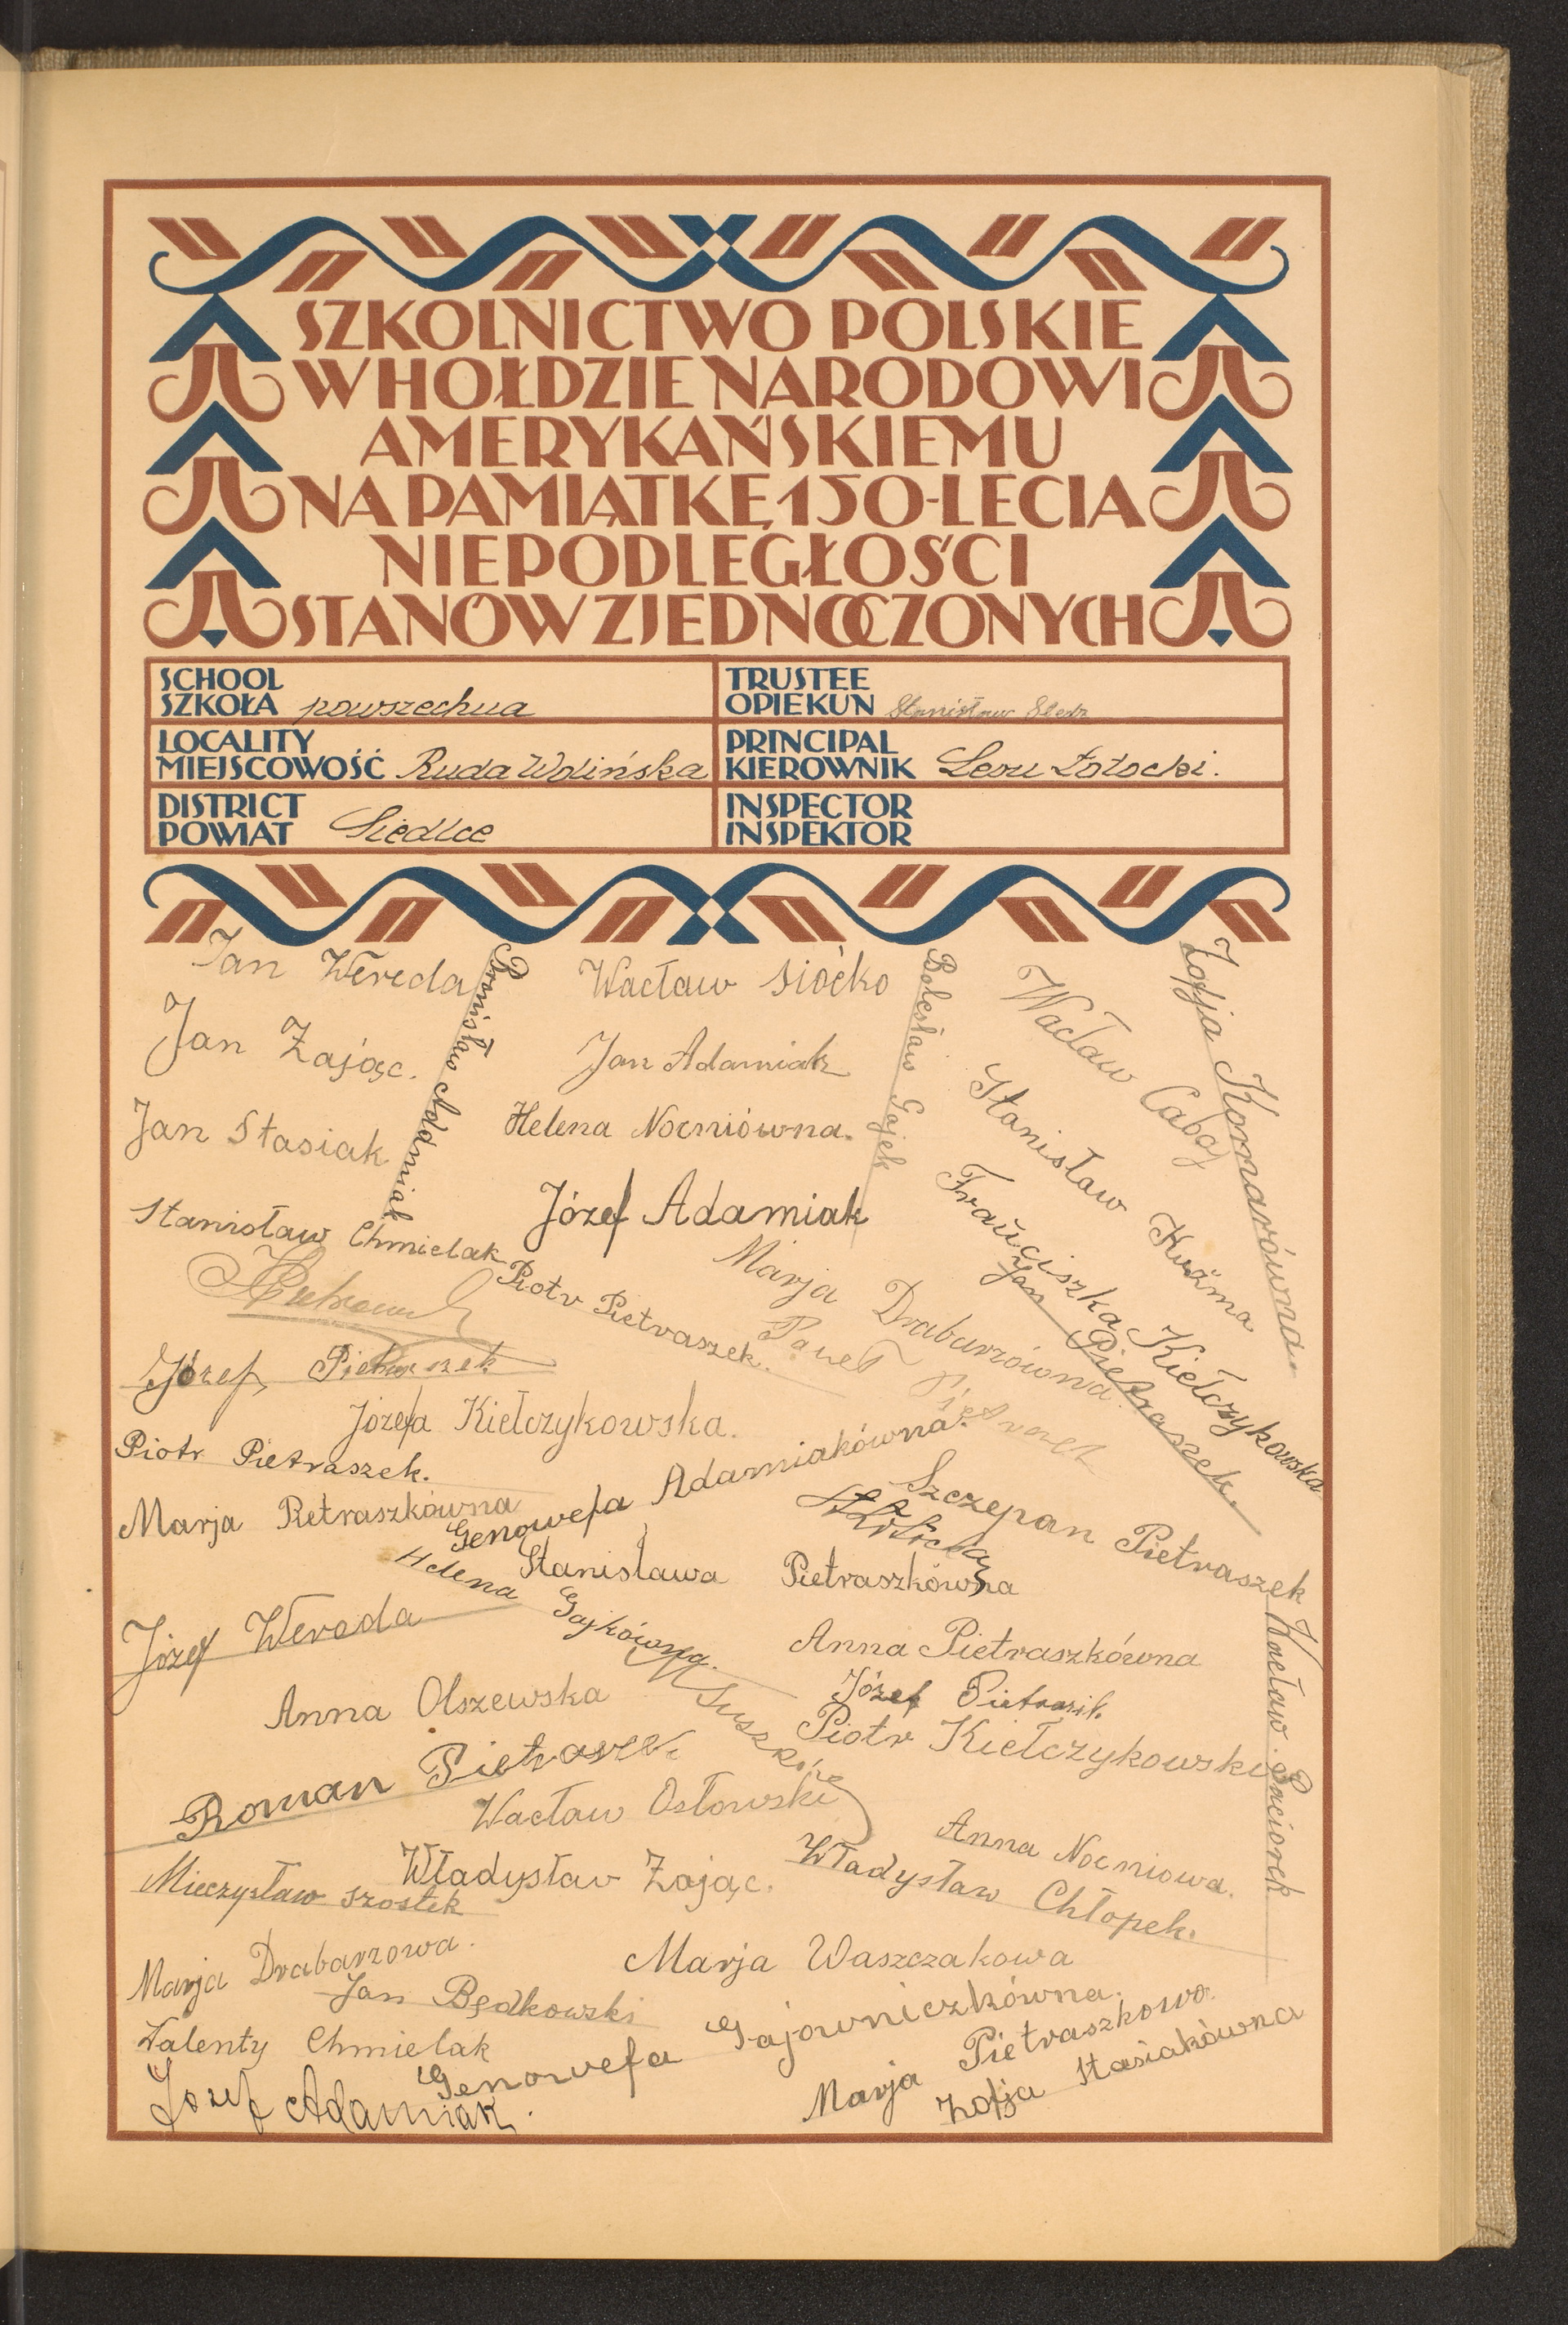 SZKOLNICTWO POLSKIE
W HOŁDZIE NARODOWI
AMERYKAŃSKIEMU
NA PAMIĄTKĘ 150-LECIA
NIEPODLEGŁOŚCI
STANÓW ZJEDNOCZONYCH
SCHOOL
SZKOŁA powszechna
TRUSTEE
OPIEKUN Stanisław
LOCALITY
MIEJSCOWOŚĆ Ruda Wolińska
PRINCIPAL
KIEROWNIK
DISTRICT
POWIAT Siedlce
INSPECTOR
INSPEKTOR
Jan Wereda
Bronisław Adamiak
Wacław Siočko
Bolesław Gajek
Wacław Cabaj
Zofja Komarówna
Jan Zając.
Jan Adamiak
Stanisław Kuźma
Jan Stasiak
Helena Nocniówna.
Franciszka Kiełczykowska
Stanisław Chmielak
Józef Adamiak
Piotr Pietraszek.
Marja Drabarzówna.
Jan Pietraszek.
Józef Pietraszek
Paweł
Józefa Kiełczykowska.
Piotr Pietraszek.
Genowefa Adamiakówna.
Marja Pietraszkówna
Szczepan Pietraszek
Stanisława Pietraszkówna
Helena Gajkówna.
Józef Wereda
Anna Pietraszkówna
Wacław Paciorek
Anna Olszewska
Józef
Piotr Kiełczykowski
Roman
Wacław Osłowski
Anna Nocniowa.
Władysław Zając.
Władysław Chłopek.
Mieczysław Szostek
Marja Drabarzowa.
Marja Waszczakowa
Jan Będkowski
Genowefa Gajowniczkówna.
Walenty Chmielak
Marja Pietraszkowa.
Zofja Stasiakówna
Józef Adamiak.